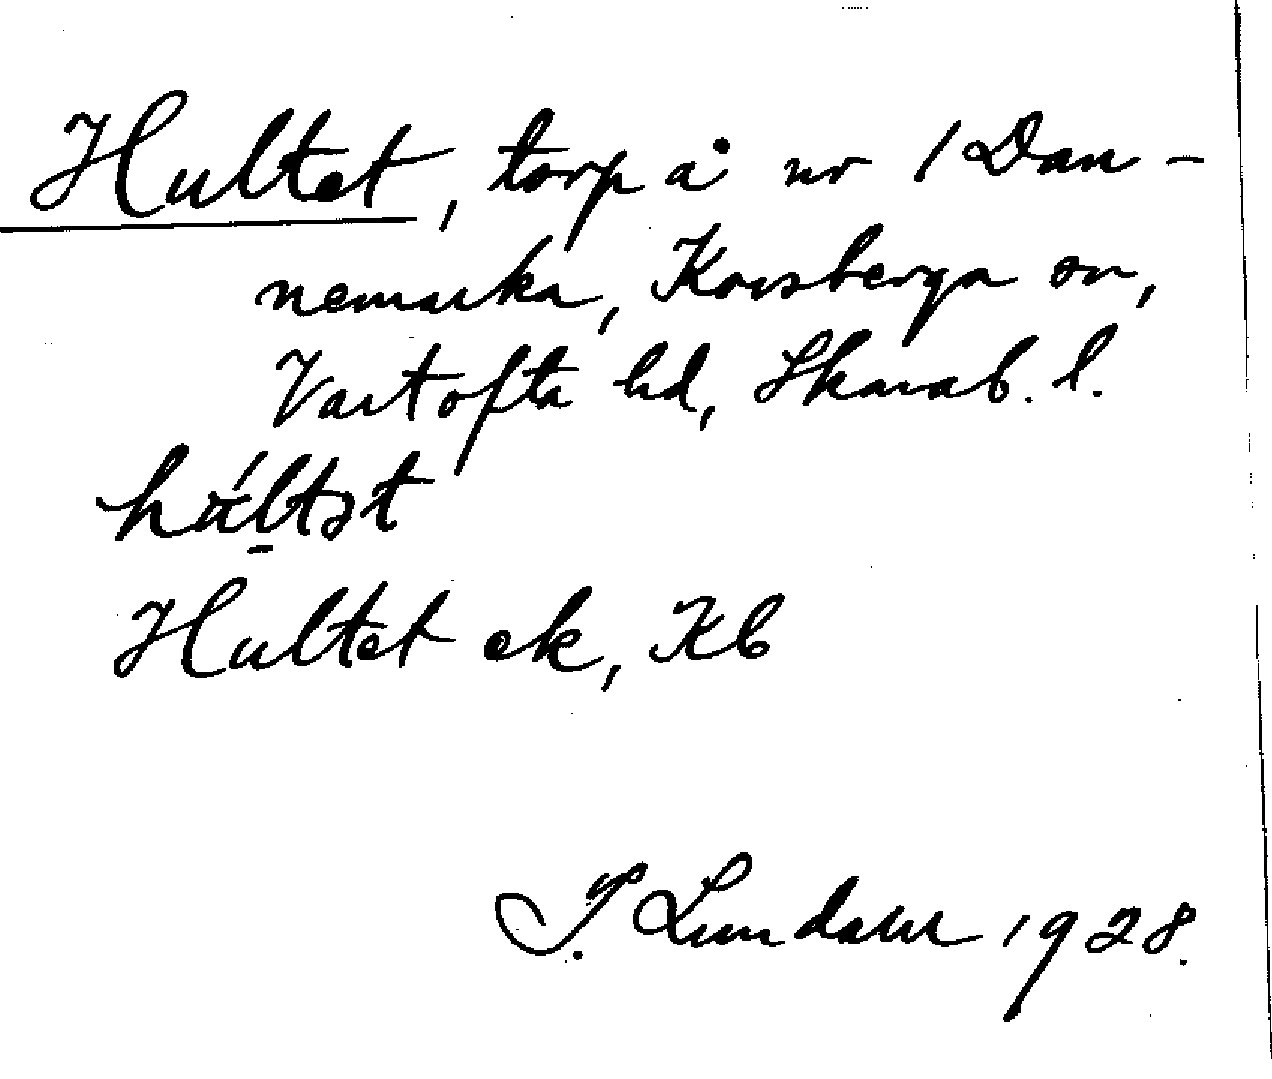 Hultet, torp å nr 1 Dan-
nemarka, Korsberga sn,
Vartofta hd, Skarab. l.
húl̠tət
Hultet ek, Kb
I. Lundahl 1928.